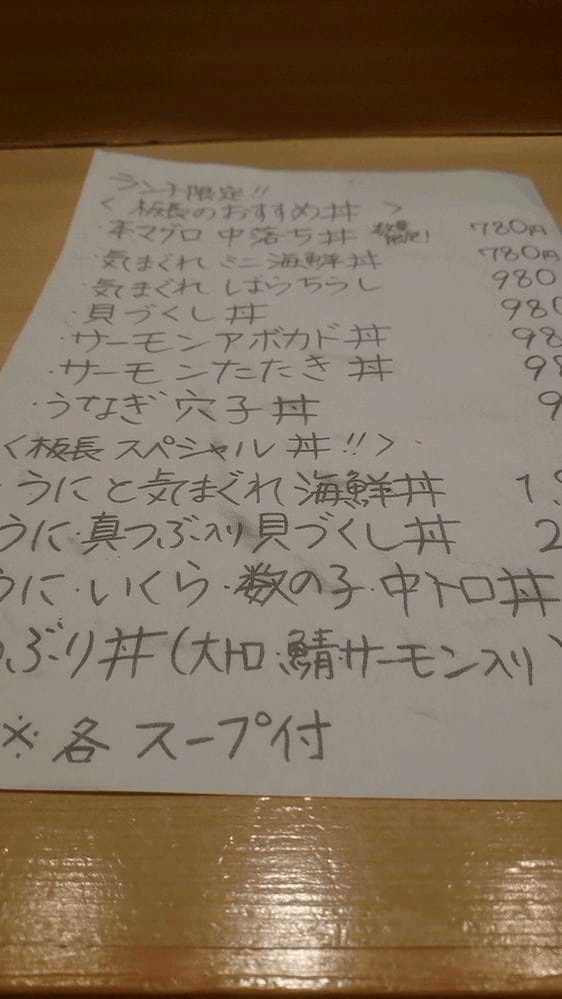 ランチ限定!!
< 板長のおすすめ丼 >
本マグロ 中落ち丼 数量限定! 780円
・気まぐれ ミニ 海鮮丼 780円
・気まぐれ ばらちらし 980
・貝づくし丼 980
・サーモンアボカド丼 98
・サーモンたたき丼 98
・うなぎ穴子丼 9
<板長スペシャル丼!!>
・うにと気まぐれ海鮮丼 1,
うに・真つぶ入り貝づくし丼 2
うに・いくら・数の子・中トロ丼
ぶり丼(大トロ・鯖・サーモン入り)
※各スープ付